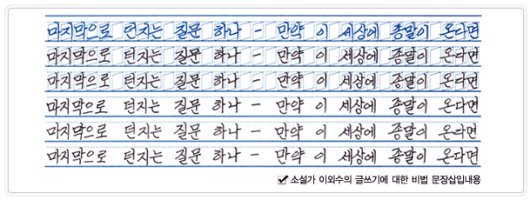 마지막으로 던지는 질문 하나 - 만약 이 세상에 종말이 온다면
마지막으로 던지는 질문 하나 - 만약 이 세상에 종말이 온다면
마지막으로 던지는 질문 하나 - 만약 이 세상에 종말이 온다면
마지막으로 던지는 질문 하나 - 만약 이 세상에 종말이 온다면
마지막으로 던지는 질문 하나 - 만약 이 세상에 종말이 온다면
마지막으로 던지는 질문 하나 - 만약 이 세상에 종말이 온다면
✔ 소설가 이외수의 글쓰기에 대한 비법 문장삽입내용